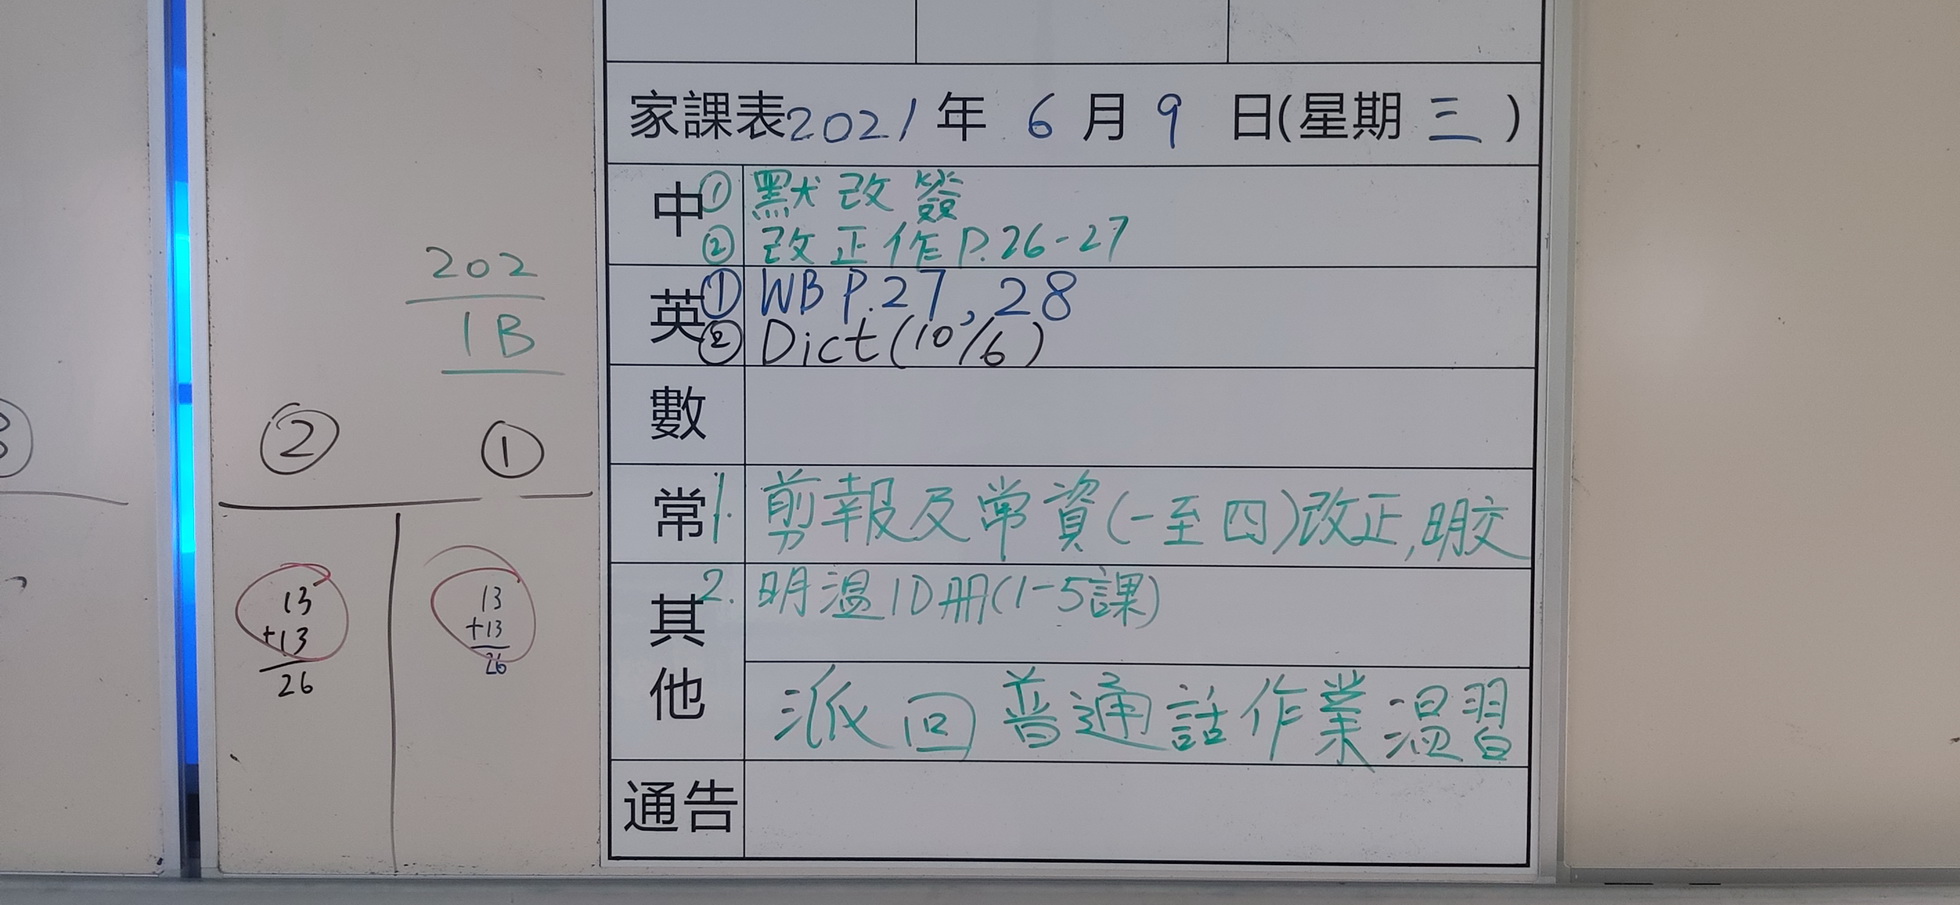 家課表2021年 6月9 日(星期三)
中① 默改簽
② 改正作P.26-27
英① WB P.27, 28
② Dict(10/6)
數
常1. 剪報及常資(一至四)改正,明交
2. 明溫1D册(1-5課)
其他
派回普通話作業溫習
通告
202
1B
② ①
13
+13
26
13
+13
26